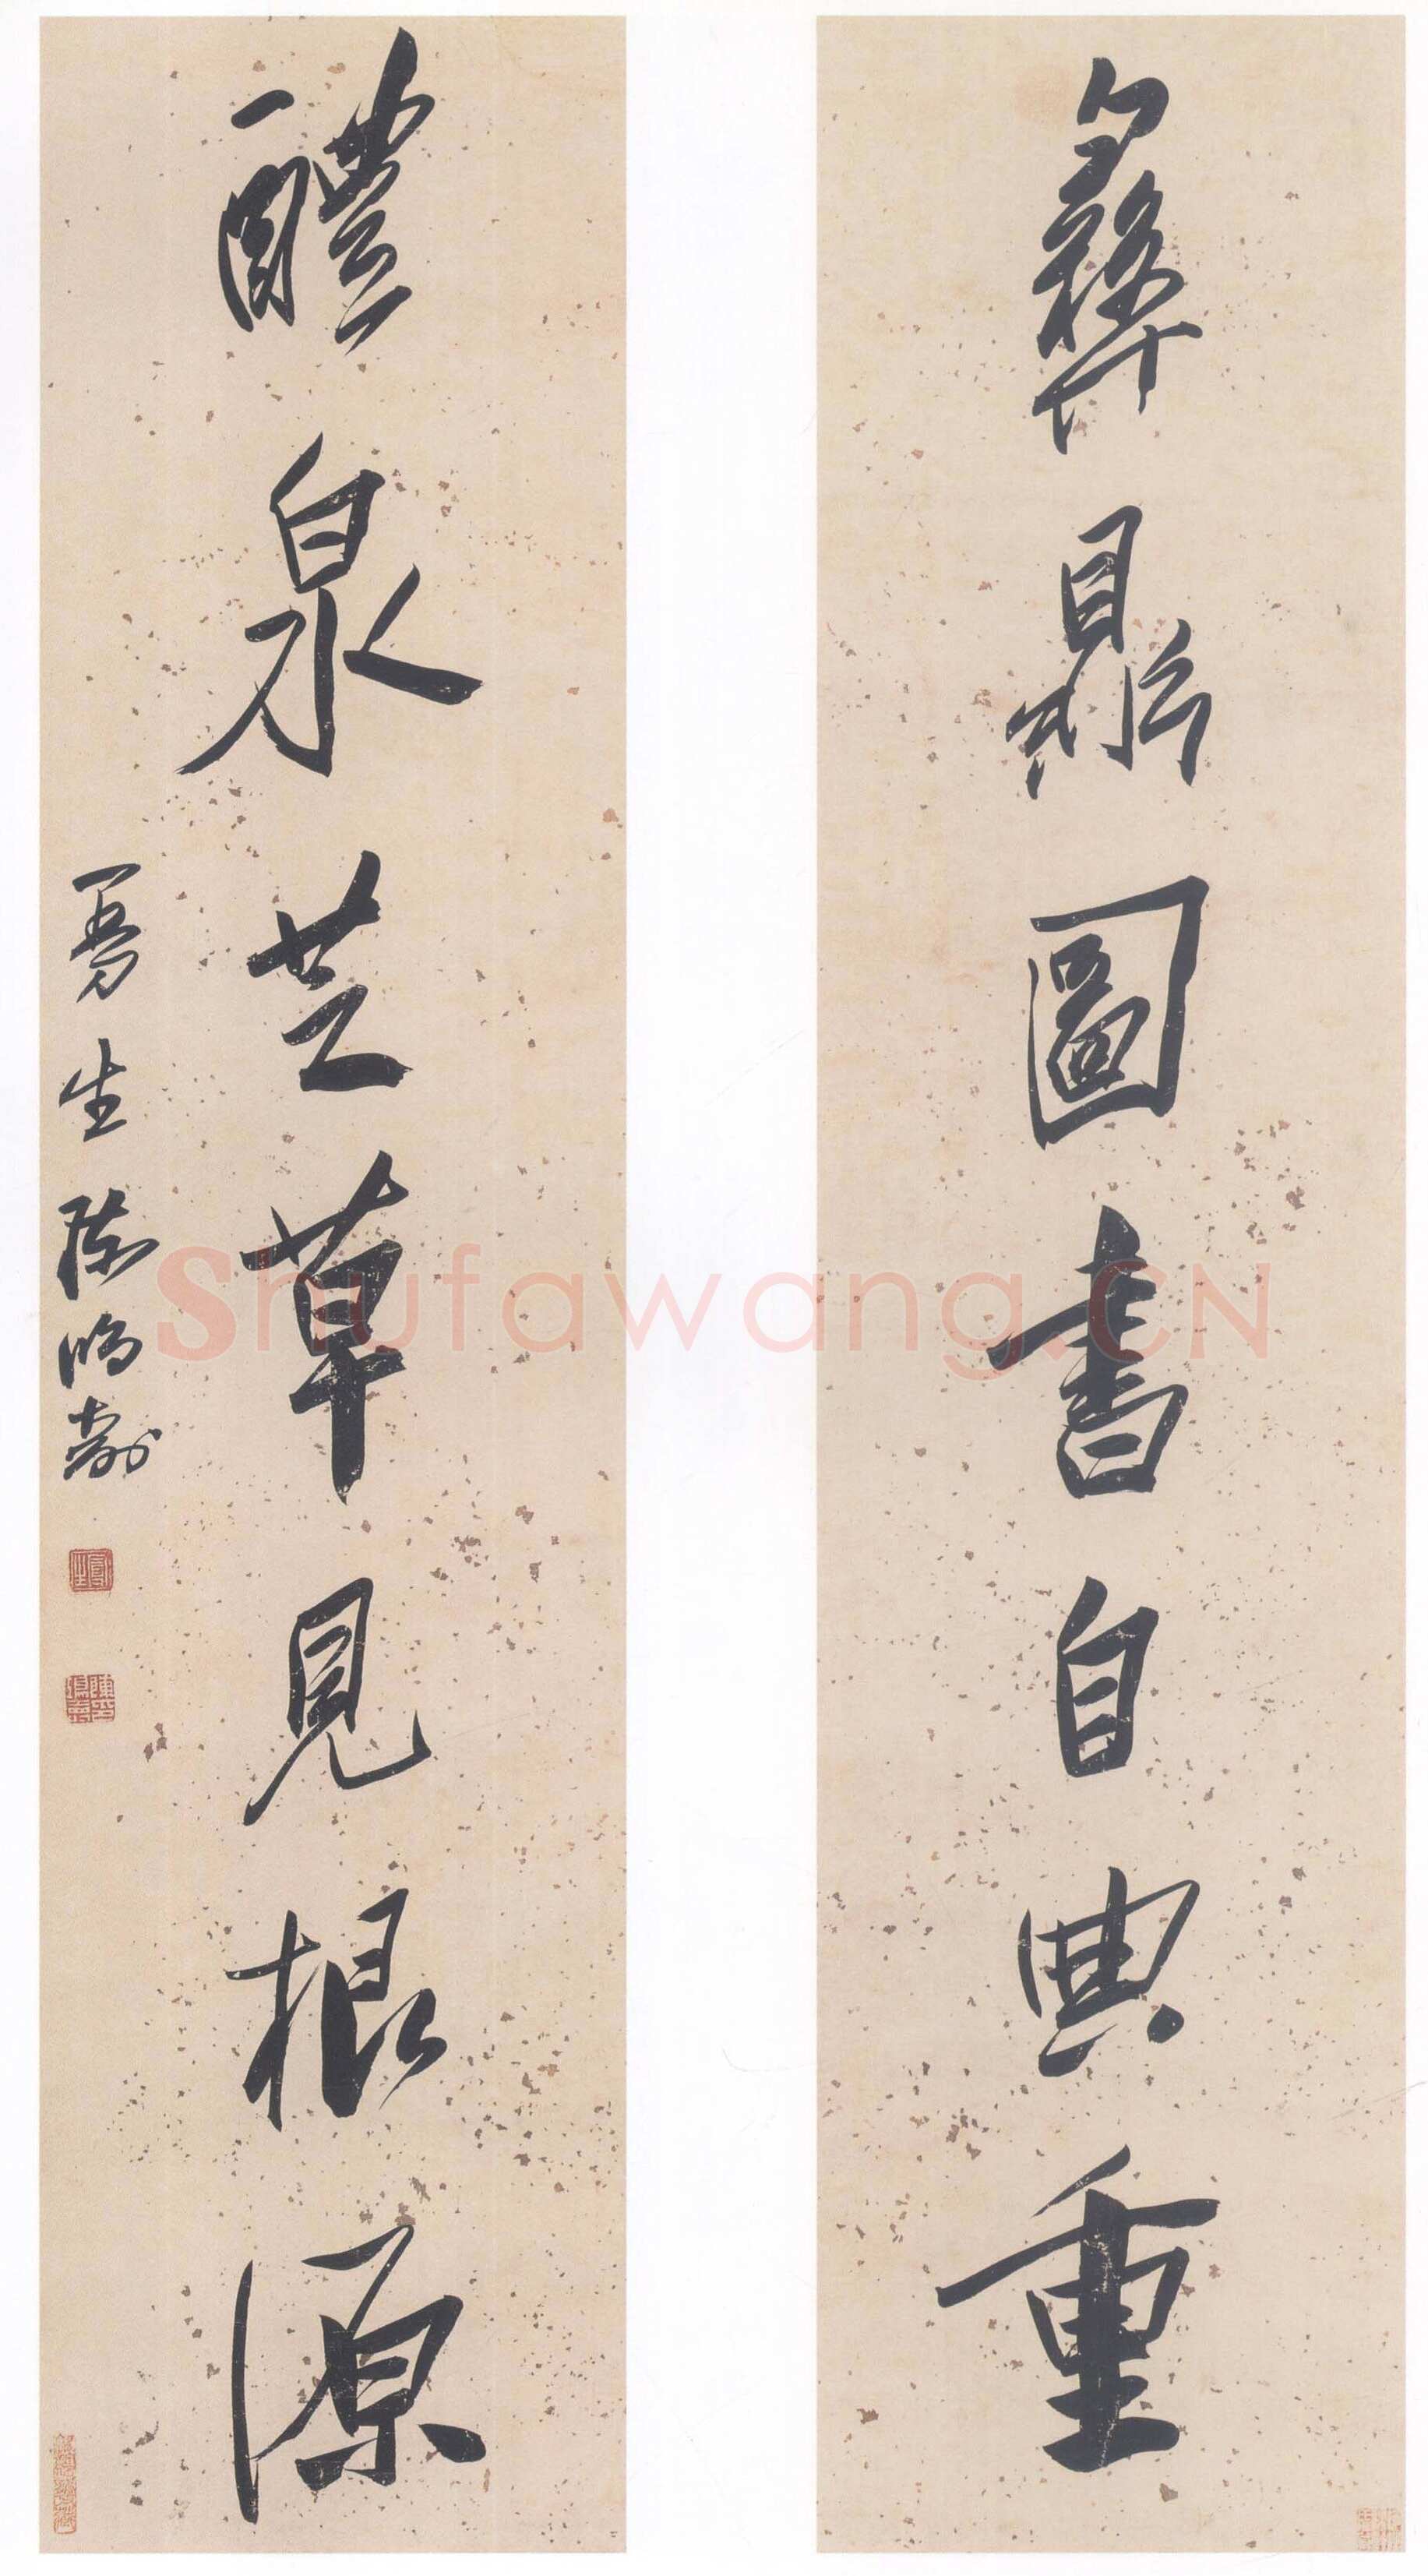 彝鼎圖書自典重
醴泉芝草見根源
曼生陳鴻壽
Shufawang.CN